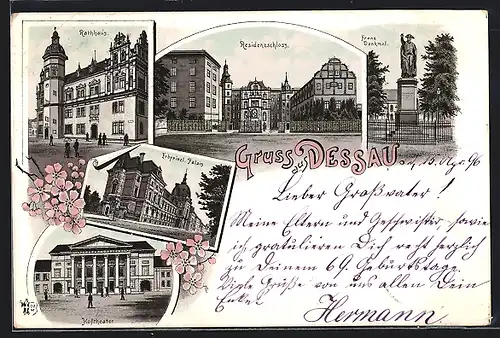 Rathhaus.
Residenzschloss.
Franz
Denkmal.
Gruss aus DESSAU
15. 96
Erbprinzl. Palais
Lieber Großvater!
Meine Eltern und Geschwister, sowie
ich gratulieren Dir recht herzlich
zu Deinem 69. Geburtstage.
Viele Grüße von uns allen Dein
Enkel
Hermann
Hoftheater